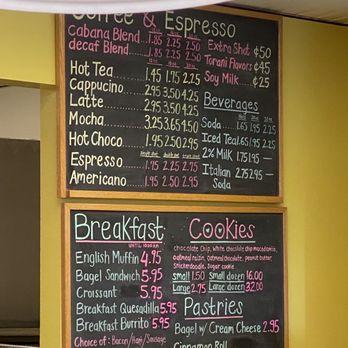 Coffee & Espresso
Cabana Blend 1.85 2.25 2.50
decaf Blend 1.85 2.25 2.50
Hot Tea 1.45 1.75 2.25
Cappucino 2.95 3.50 4.25
Latte 2.95 3.50 4.25
Mocha 3.25 3.65 4.50
Hot Choco 1.95 2.50 2.95
Espresso 1.75 2.25 2.75
Americano 1.95 2.50 2.95
Extra Shot ¢50
Torani Flavors ¢45
Soy Milk ¢25
Beverages
Soda 1.65 1.95 2.35
Iced Tea 1.65 1.95 2.35
2% Milk 1.75 1.95 -
Italian 2.75 2.95 -
Soda
Breakfast
UNTIL 10:30 AM
English Muffin 4.75
Bagel Sandwich 5.95
Croissant 5.95
Breakfast Quesadilla 5.95
Breakfast Burrito 5.95
Choice of: Bacon/Ham/Sausage
Cookies
chocolate chip, white chocolate chip macadamia,
oatmeal raisin, oatmeal chocolate, peanut butter,
snickerdoodle, sugar cookie
small 1.50 Small dozen 16.00
Large 2.75 Large dozen 32.00
Pastries
Bagel w/ Cream Cheese 2.95
Cinnamon Roll